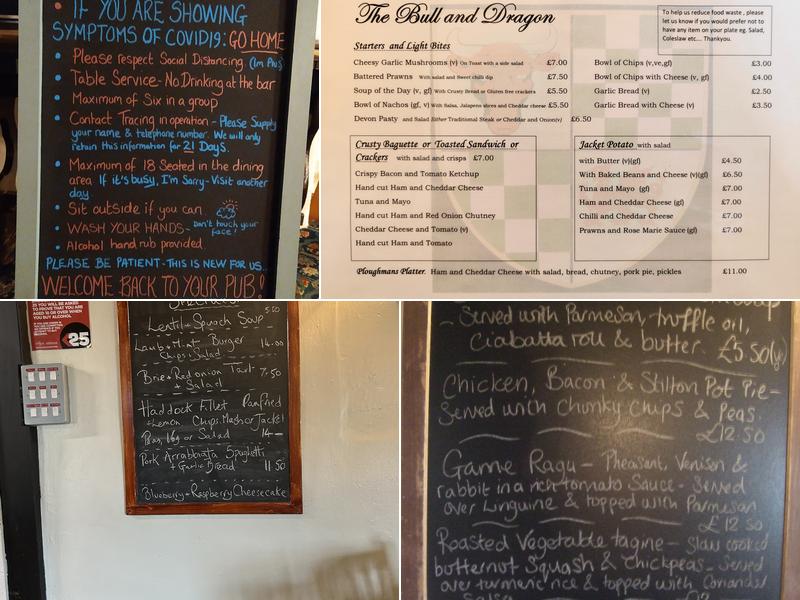 IF YOU ARE SHOWING
SYMPTOMS OF COVID19: GO HOME
• Please respect Social Distancing (1m Plus)
• Table Service - No Drinking at the bar
• Maximum of Six in a group
• Contact Tracing in operation - Please Supply
your name & telephone number. We will only
retain this information for 21 Days.
• Maximum of 18 Seated in the dining
area If it's busy, I'm Sorry - Visit another
day.
• Sit outside if you can
• WASH YOUR HANDS - Don't touch your
face!
• Alcohol hand rub provided.
PLEASE BE PATIENT - THIS IS NEW FOR US..
WELCOME BACK TO YOUR PUB!
The Bull and Dragon
To help us reduce food waste , please
let us know if you would prefer not to
have any item on your plate eg. Salad,
Coleslaw etc.... Thankyou.
Starters and Light Bites
Cheesy Garlic Mushrooms (v) On Toast with a side salad £7.00
Battered Prawns With salad and Sweet chilli dip £7.50
Soup of the Day (v, gf) With Crusty Bread or Gluten free crackers £5.50
Bowl of Nachos (gf, v) With Salsa, Jalapenos slices and Cheddar cheese £5.50
Devon Pasty and Salad Either Traditional Steak or Cheddar and Onion(v) £6.50
Bowl of Chips (v,ve,gf) £3.00
Bowl of Chips with Cheese (v, gf) £4.00
Garlic Bread (v) £2.50
Garlic Bread with Cheese (v) £3.50
Crusty Baguette or Toasted Sandwich or
Crackers with salad and crisps £7.00
Crispy Bacon and Tomato Ketchup
Hand cut Ham and Cheddar Cheese
Tuna and Mayo
Hand cut Ham and Red Onion Chutney
Cheddar Cheese and Tomato (v)
Hand cut Ham and Tomato
Jacket Potato with salad
with Butter (v)(gf) £4.50
With Baked Beans and Cheese (v)(gf) £6.50
Tuna and Mayo (gf) £7.00
Ham and Cheddar Cheese (gf) £7.00
Chilli and Cheddar Cheese £7.00
Prawns and Rose Marie Sauce (gf) £7.00
Ploughmans Platter. Ham and Cheddar Cheese with salad, bread, chutney, pork pie, pickles £11.00
YOU WILL BE ASKED
TO PROVE THAT YOU ARE
AGED 18 OR OVER WHEN
YOU BUY ALCOHOL
25
5.50
Lentil + Spinach Soup
Lamb + Mint Burger 14.00
Chips + Salad
Brie + Red onion Tart 7.50
+ Salad
Haddock Fillet Panfried
+ Lemon Chips, Mash or Jacket
Peas, Veg or Salad 14 -
Pork Arrabbiata Spaghetti
+ Garlic Bread 11.50
Blueberry + Raspberry Cheesecake
- Served with Parmesan, truffle oil,
Ciabatta roll & butter. £5.50(v)
Chicken, Bacon & Stilton Pot Pie -
Served with Chunky Chips & Peas.
£12.50
Game Ragu - Pheasant, Venison &
rabbit in a rich tomato Sauce - Served
over Linguine & topped with Parmesan
£12.50
Roasted Vegetable tagine - Slow cooked
butternot Squash & Chickpeas - Served
over turmeric rice & topped with Coriander
Salsa